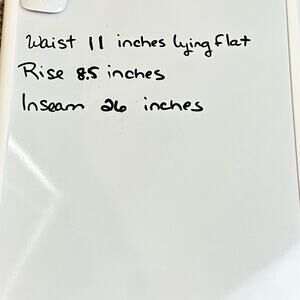 Waist 11 inches lying flat
Rise 8.5 inches
Inseam 26 inches